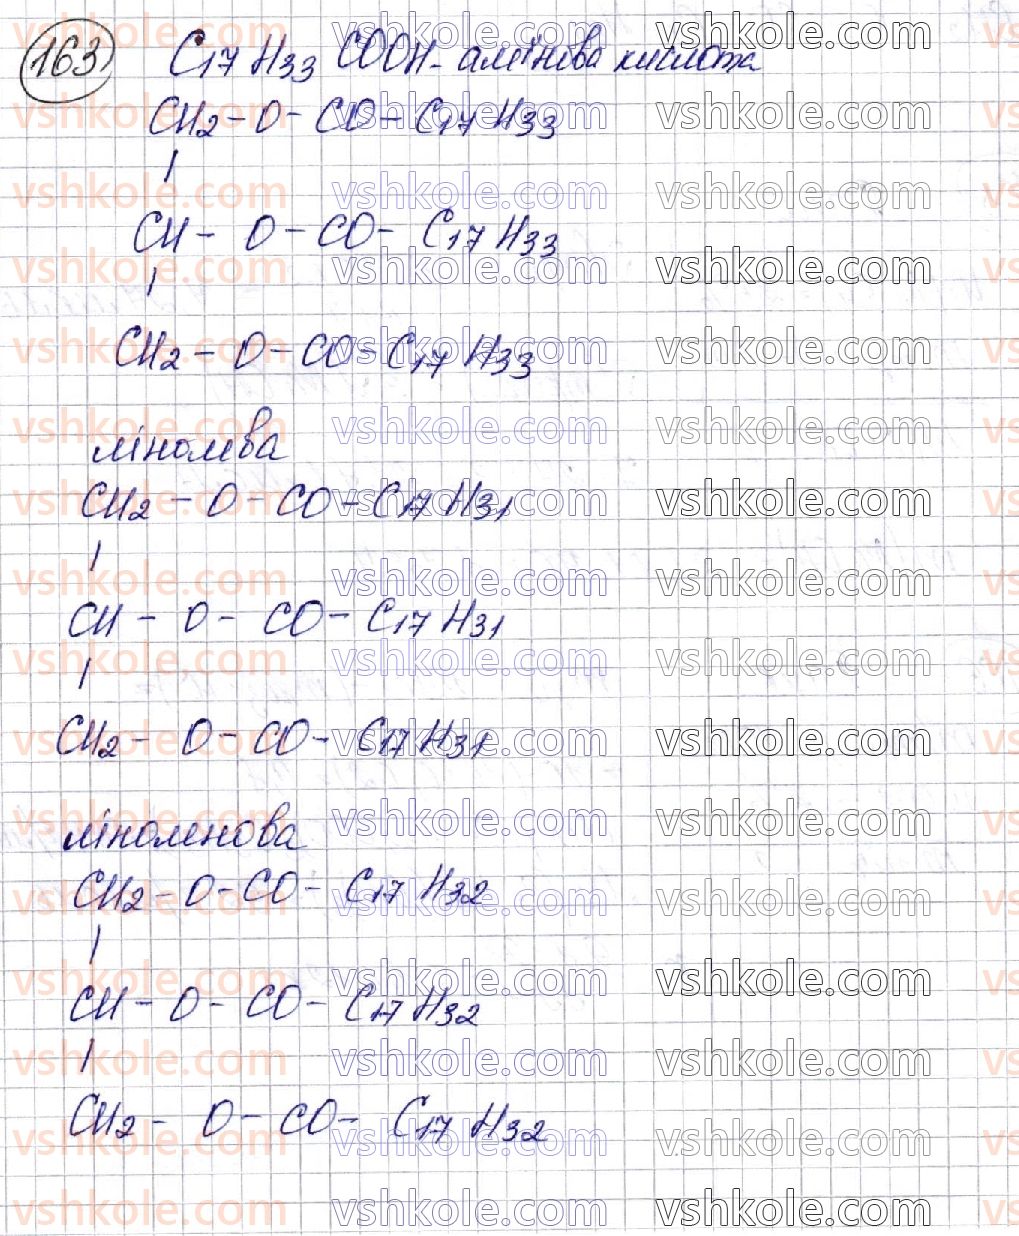 163 C17H33COOH - амінова кислота
CH2-O-CO-C17H33
|
CH-O-CO-C17H33
|
CH2-O-CO-C17H33
лінолева
CH2-O-CO-C17H31
|
CH-O-CO-C17H31
|
CH2-O-CO-C17H31
ліноленова
CH2-O-CO-C17H32
|
CH-O-CO-C17H32
|
CH2-O-CO-C17H32
vshkole.com